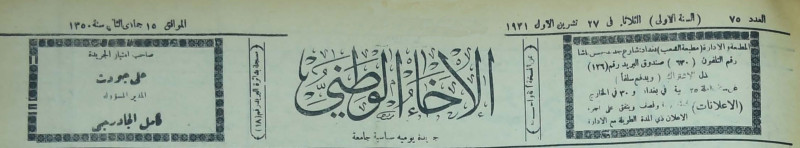 العدد ٧٥ (السنة الاولى) الثلاثاء في ٢٧ تشرين الاول ١٩٣١ الموافق ١٥ جمادى الثاني سنة ١٣٥٠
المطبعة والادارة (مطبعة الشعب) بغداد شارع
رقم التلفون (٦٣٠) صندوق البريد رقم (١٢٦)
بدل الاشتراك (ويدفع سلفا)
في بغداد و ٣٠ في الخارج
(الاعلانات) ونصف ويتفق على اجرة
الاعلان ذي المدة الطويلة مع الادارة
الاخاء الوطني
جريدة يومية سياسية جامعة
(سجلت بدائرة البريد برقم (١٨)
صاحب امتياز الجريدة
علي جودت
المدير المسؤول
كامل الجادرجي